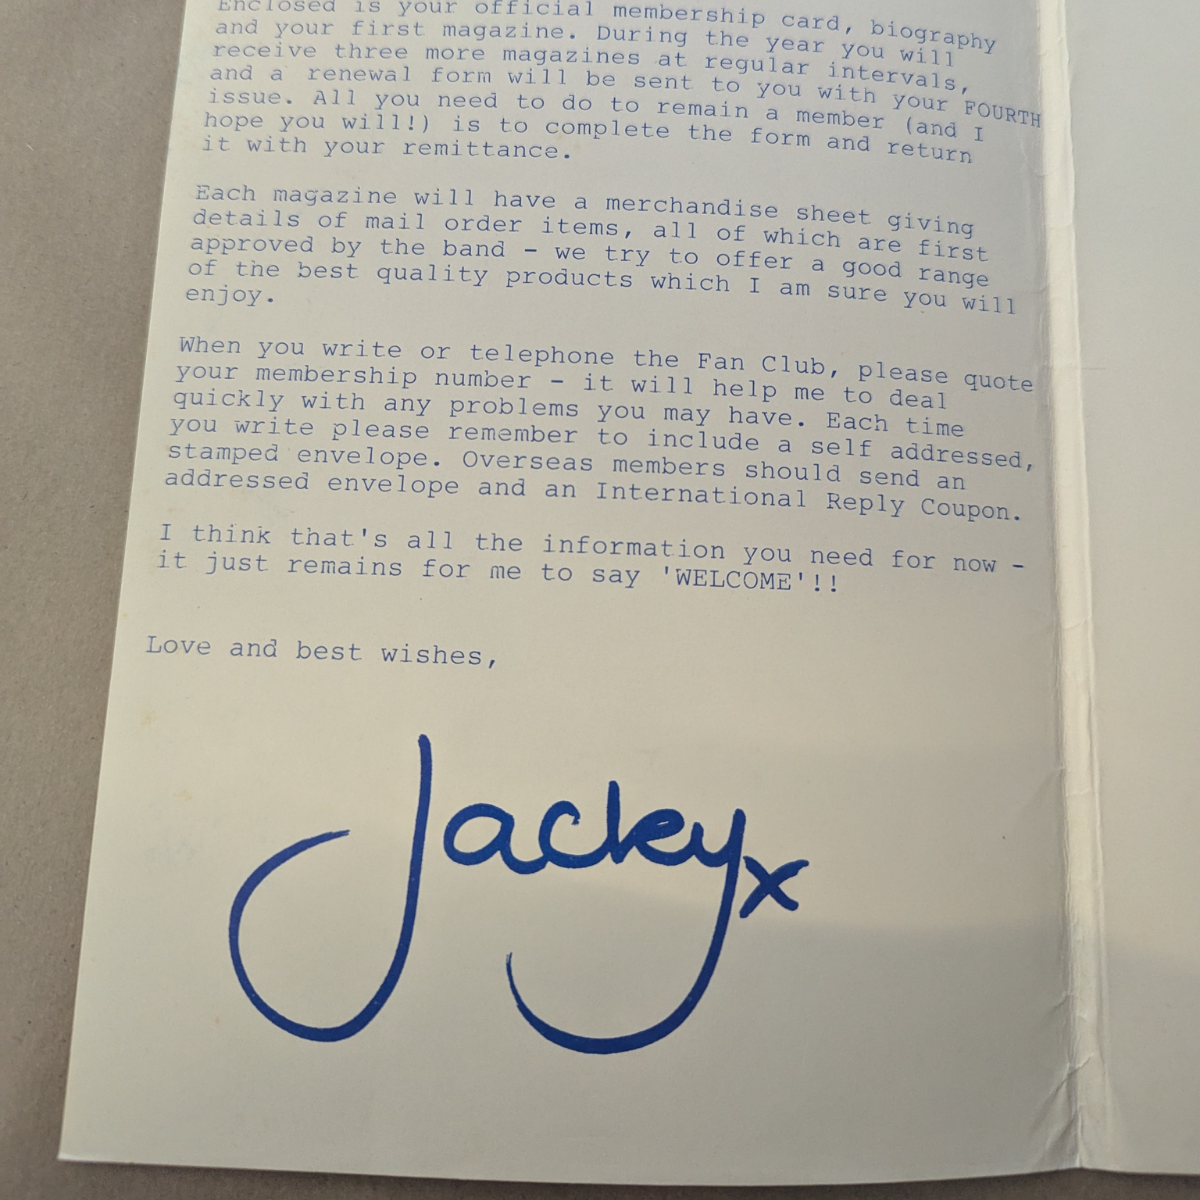 Enclosed is your official membership card, biography
and your first magazine. During the year you will
receive three more magazines at regular intervals,
and a renewal form will be sent to you with your FOURTH
issue. All you need to do to remain a member (and I
hope you will!) is to complete the form and return
it with your remittance.
Each magazine will have a merchandise sheet giving
details of mail order items, all of which are first
approved by the band - we try to offer a good range
of the best quality products which I am sure you will
enjoy.
When you write or telephone the Fan Club, please quote
your membership number - it will help me to deal
quickly with any problems you may have. Each time
you write please remember to include a self addressed,
stamped envelope. Overseas members should send an
addressed envelope and an International Reply Coupon.
I think that's all the information you need for now -
it just remains for me to say 'WELCOME'!!
Love and best wishes,
Jacky x